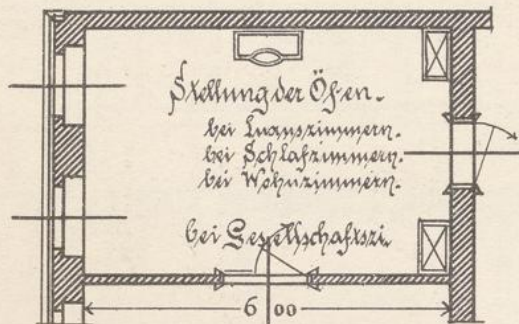 Stellung der Öfen.
bei Luxuszimmern.
bei Schlafzimmern.
bei Wohnzimmern.
bei Gesellschaftszi.
6 00